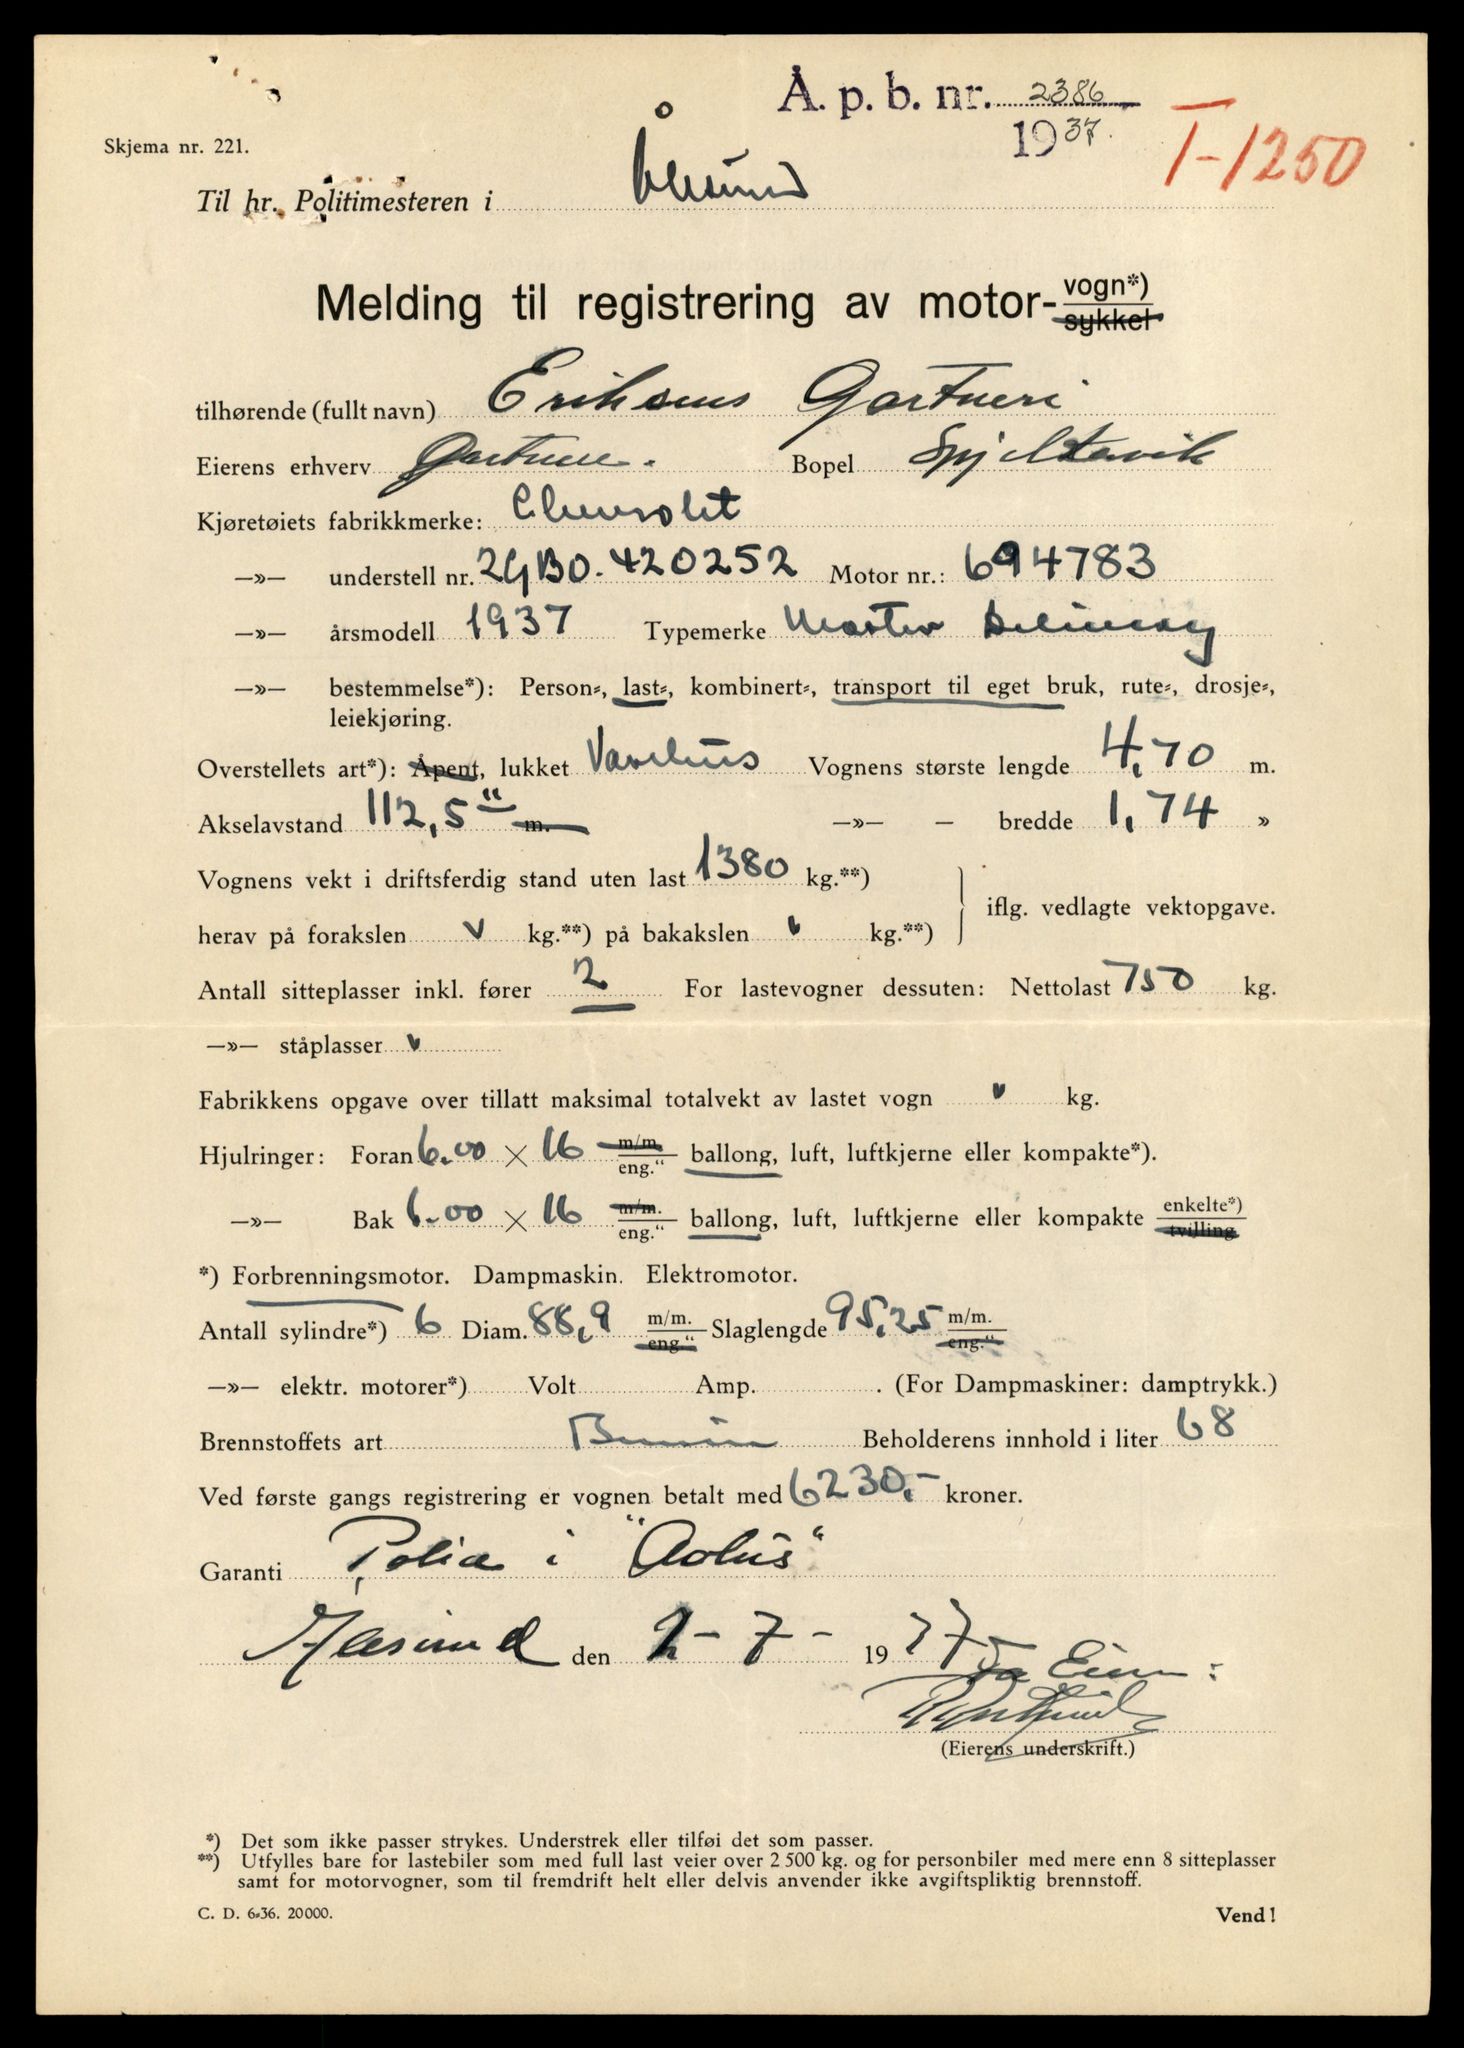 Å. p. b. nr. 2386
1937.
T-1250
Skjema nr. 221.
Til hr. Politimesteren i Ålesund
Melding til registrering av motor- vogn*)
sykkel
tilhørende (fullt navn) Eriksens Gartneri
Eierens erhverv Gartneri. Bopel Spjelkavik
Kjøretøiets fabrikkmerke: Chevrolet
—»— understell nr. 2GB0. 420252 Motor nr.: 694783
—»— årsmodell 1937 Typemerke Master Delivery
—»— bestemmelse*): Person-, last-, kombinert-, transport til eget bruk, rute-, drosje-,
leiekjøring.
Overstellets art*): Åpent, lukket Varehus Vognens største lengde 4,70 m.
Akselavstand 112,5" m. —»— — bredde 1,74 »
Vognens vekt i driftsferdig stand uten last 1380 kg.**)
iflg. vedlagte vektopgave.
herav på forakslen v kg.**) på bakakslen v kg.**)
Antall sitteplasser inkl. fører 2 For lastevogner dessuten: Nettolast 750 kg.
—»— ståplasser v
Fabrikkens opgave over tillatt maksimal totalvekt av lastet vogn v kg.
Hjulringer: Foran 6.00 × 16 m/m. eng." ballong, luft, luftkjerne eller kompakte*).
—»— Bak 6.00 × 16 m/m. eng." ballong, luft, luftkjerne eller kompakte enkelte*) tvilling
*) Forbrenningsmotor. Dampmaskin. Elektromotor.
Antall sylindre*) 6 Diam. 88,9 m/m. eng." Slaglengde 95,25 m/m. eng."
—»— elektr. motorer*) Volt Amp. . (For Dampmaskiner: damptrykk.)
Brennstoffets art Bensin Beholderens innhold i liter 68
Ved første gangs registrering er vognen betalt med 6230,- kroner.
Garanti Polise i "Aolus"
Aalesund den 2-7-1937
for Eieren:
(Eierens underskrift.)
*) Det som ikke passer strykes. Understrek eller tilføi det som passer.
**) Utfylles bare for lastebiler som med full last veier over 2 500 kg. og for personbiler med mere enn 8 sitteplasser
samt for motorvogner, som til fremdrift helt eller delvis anvender ikke avgiftspliktig brennstoff.
C. D. 6-36. 20000.
Vend!